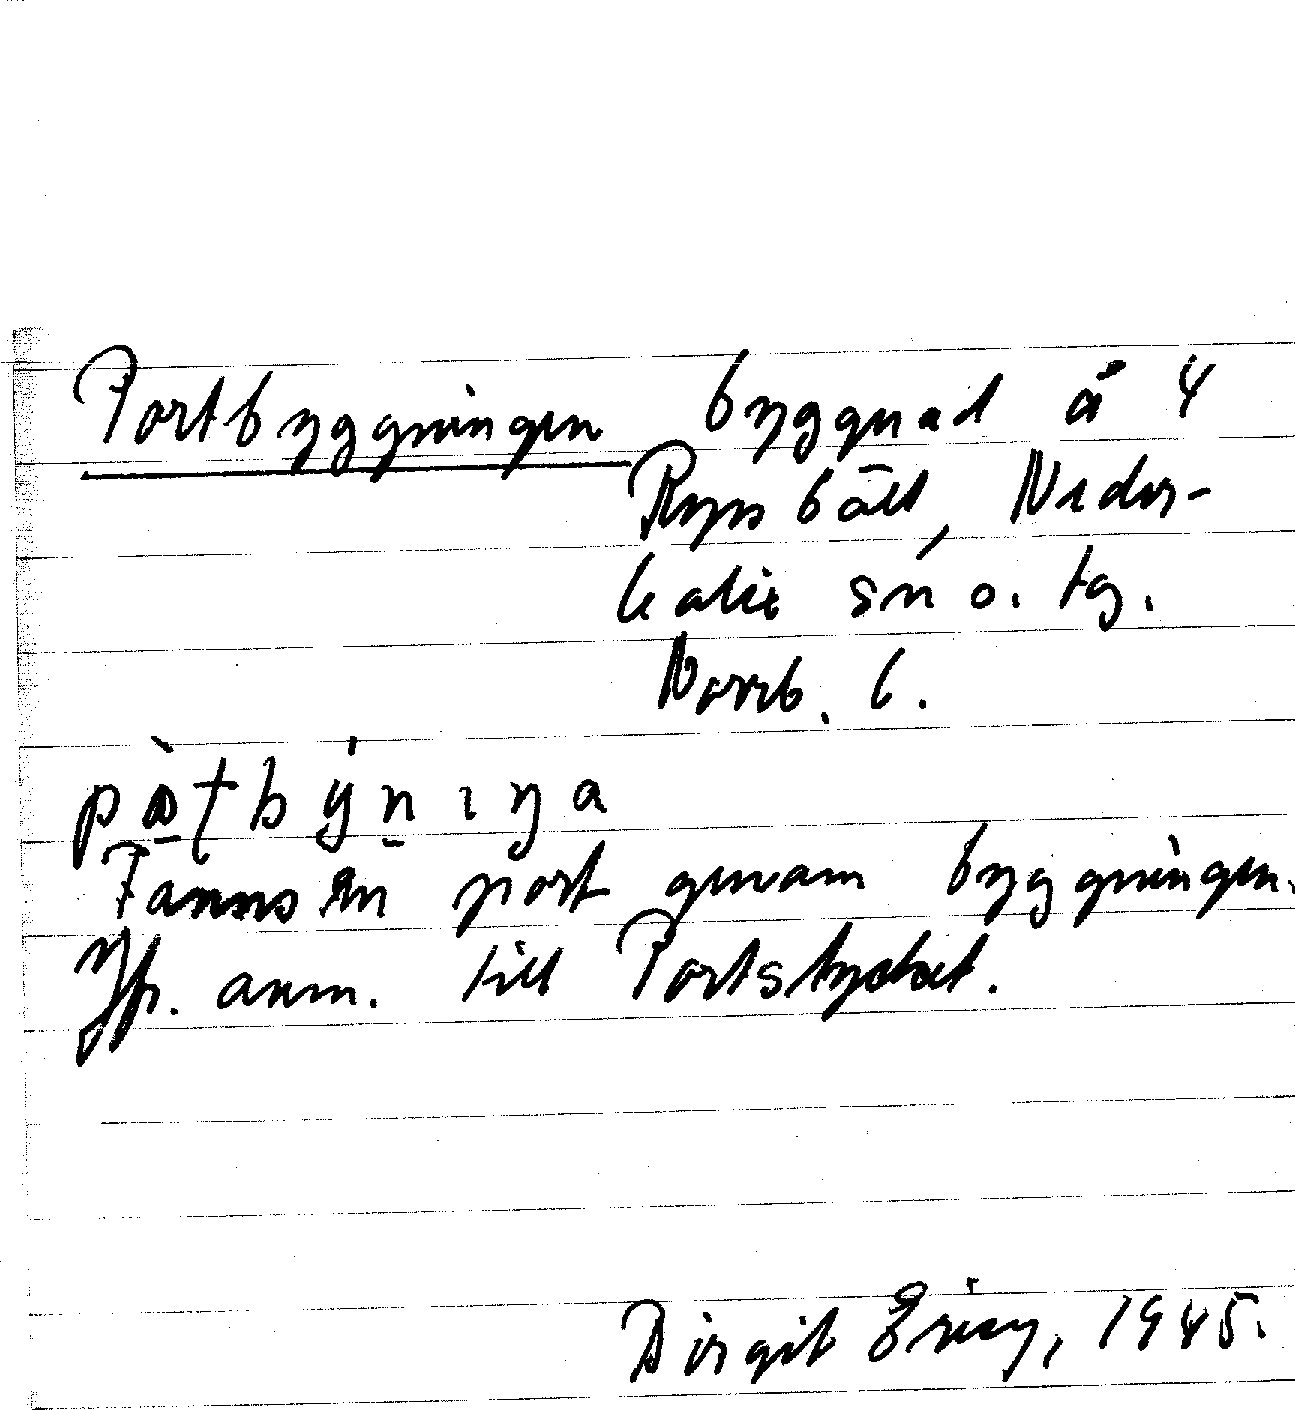 Portbyggningen byggnad å 4
Rysbält, Neder-
kalix sn o. tg.
Norrb. l.
Fanns en port genom byggningen.
Jfr. anm. till Portstycket.
Birgit Ericz, 1945.